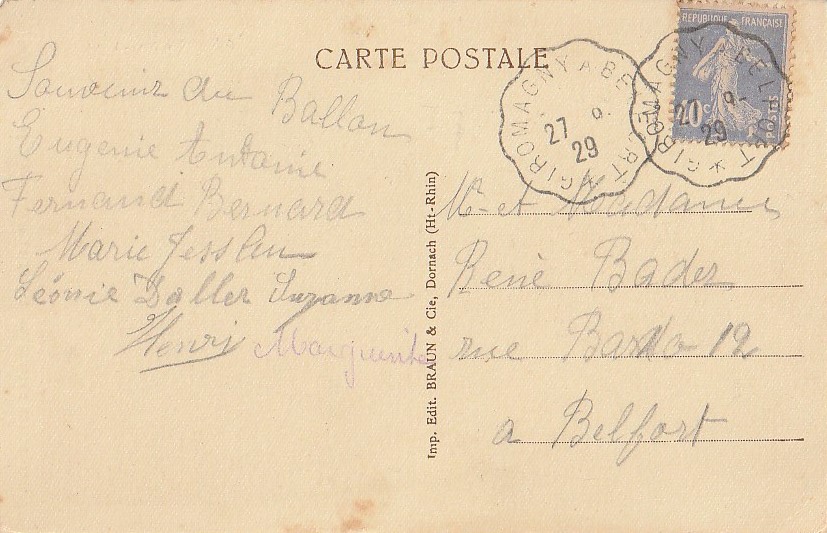 CARTE POSTALE
Souvenir du Ballon
Eugenie Antoine
Fernand Bernard
Marie
Léonie Daller Suzanne
Henri Marguerite
Imp. Edit. BRAUN & Cie, Dornach (Ht-Rhin)
GIROMAGNY A BELFORT
27 9
29
GIROMAGNY A BELFORT
27 9
29
RÉPUBLIQUE FRANÇAISE
20c
POSTES
Mr et Madame
René Bader
rue 12
a Belfort